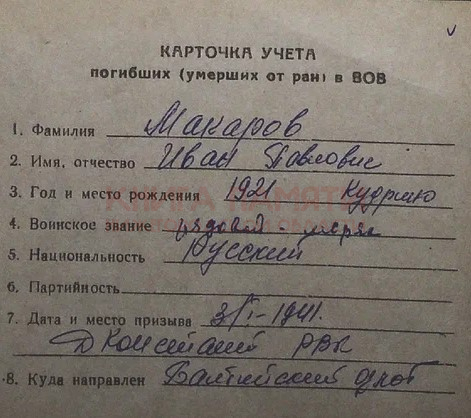 КАРТОЧКА УЧЕТА
погибших (умерших от ран) в ВОВ
1. Фамилия Макаров
2. Имя, отчество Иван Павлович
3. Год и место рождения 1921 Кудрино
4. Воинское звание рядовой - моряк
5. Национальность Русский
6. Партийность
7. Дата и место призыва 1941.
РВК
8. Куда направлен Балтийский флот